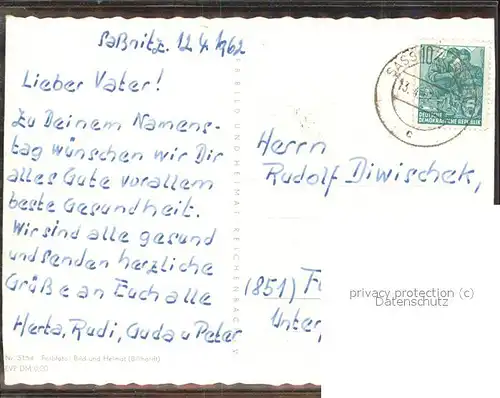 Saßnitz, 12.4.1962
Lieber Vater!
Zu Deinem Namens-
tag wünschen wir Dir
alles Gute vorallem
beste Gesundheit.
Wir sind alle gesund
und senden herzliche
Grüße an Euch alle
Herta, Rudi, Guda u Peter
Herrn
Rudolf Diwischek,
(851)
Unter
10
DEUTSCHE
DEMOKRATISCHE REPUBLIK
SASS
13.4.
c
BILD UND HEIMAT REICHENBACH
privacy protection (c)
Datenschutz
Farbfoto: Bild und Heimat
EVP DM 0,20